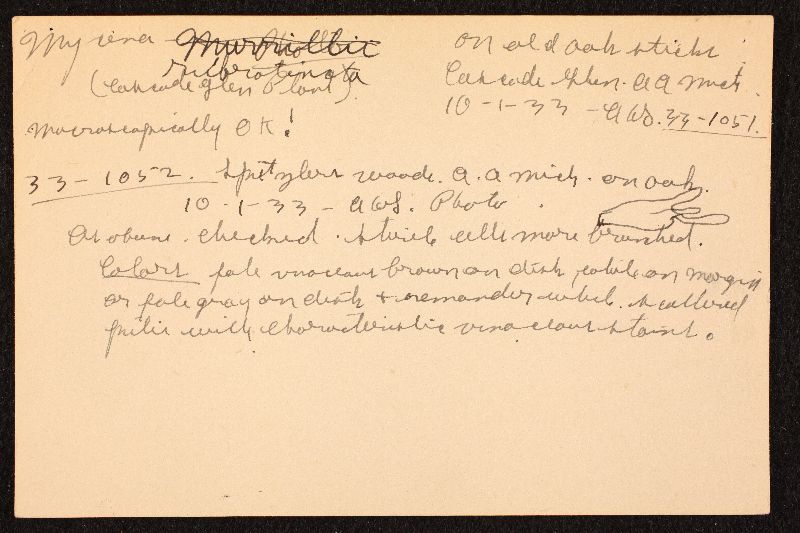 Mycena Murriollbii
rubrotincta
(Cascade glen Plant).
on old oak sticks
Cascade Glen. A A Mich.
10-1-33 - AHS. 33-1051.
Macroscopically OK!
33-1052. woods. A. A Mich. on oak.
10-1-33 - AHS. Photo.
As above. checked. sterile cells more branched.
Colors pale vinaceous brown on disk, white on margin
or pale gray on disk + remainder white. scattered
pilei with characteristic vinaceous stains.